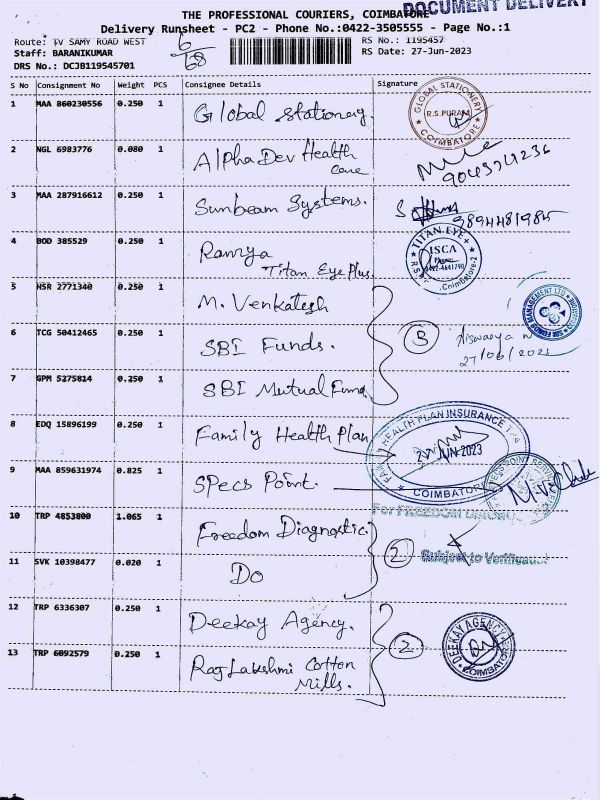 THE PROFESSIONAL COURIERS, COIMBATORE
DOCUMENT DELIVERY
Delivery Runsheet - PC2 - Phone No.:0422-3505555 - Page No.:1
Route: TV SAMY ROAD WEST
6/68
RS No.: 1195457
Staff: BARANIKUMAR
RS Date: 27-Jun-2023
DRS No.: DCJB119545701
S No Consignment No Weight PCS Consignee Details Signature
1 MAA 860230556 0.250 1 Global Stationery.
GLOBAL STATIONERY
R.S.PURAM
COIMBATORE
2 NGL 6983776 0.080 1 AlphaDev Health
care
3 MAA 287916612 0.250 1 Sunbeam Systems.
9894481985
4 BOD 385529 0.250 1 Ramya
Titan Eye Plus.
TITAN EYE+
ISCA
Coimbatore-2
5 HSR 2771340 0.250 1 M. Venkatesh
6 TCG 50412465 0.250 1 SBI Funds.
3
Aiswarya N
27/06/2023
7 GPM 5275814 0.250 1 SBI Mutual Fund.
8 EDQ 15896199 0.250 1 Family Health Plan
FAMILY HEALTH PLAN INSURANCE TPA
JUN 2023
COIMBATORE
9 MAA 859631974 0.825 1 Specs Point.
10 TRP 4853800 1.065 1 Freedom Diagnostic
For FREEDOM
11 SVK 10398477 0.020 1 Do
2
Subject to Verification
12 TRP 6336307 0.250 1 Deekay Agency.
2
DEEKAY AGENCY
13 TRP 6092579 0.250 1 Raj Lakshmi Cotton
Mills.